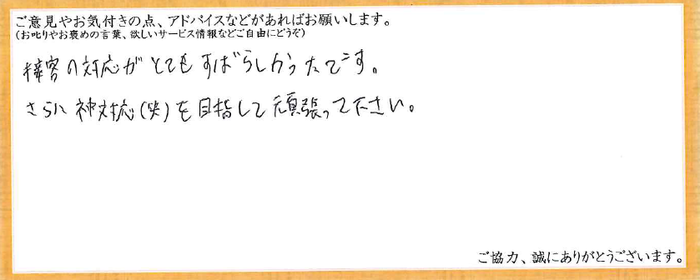 ご意見やお気付きの点、アドバイスなどがあればお願いします。
(お叱りやお褒めの言葉、欲しいサービス情報などご自由にどうぞ)
接客の対応がとてもすばらしかったです。
さらに神対応(笑)を目指して頑張って下さい。
ご協力、誠にありがとうございます。